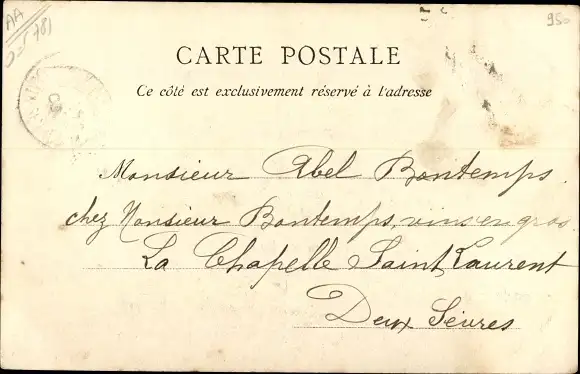 AA
781
950
CARTE POSTALE
Ce côté est exclusivement réservé à l'adresse
Monsieur Abel Bontemps
chez Monsieur Bontemps, vins en gros
La Chapelle Saint Laurent
Deux Sèvres